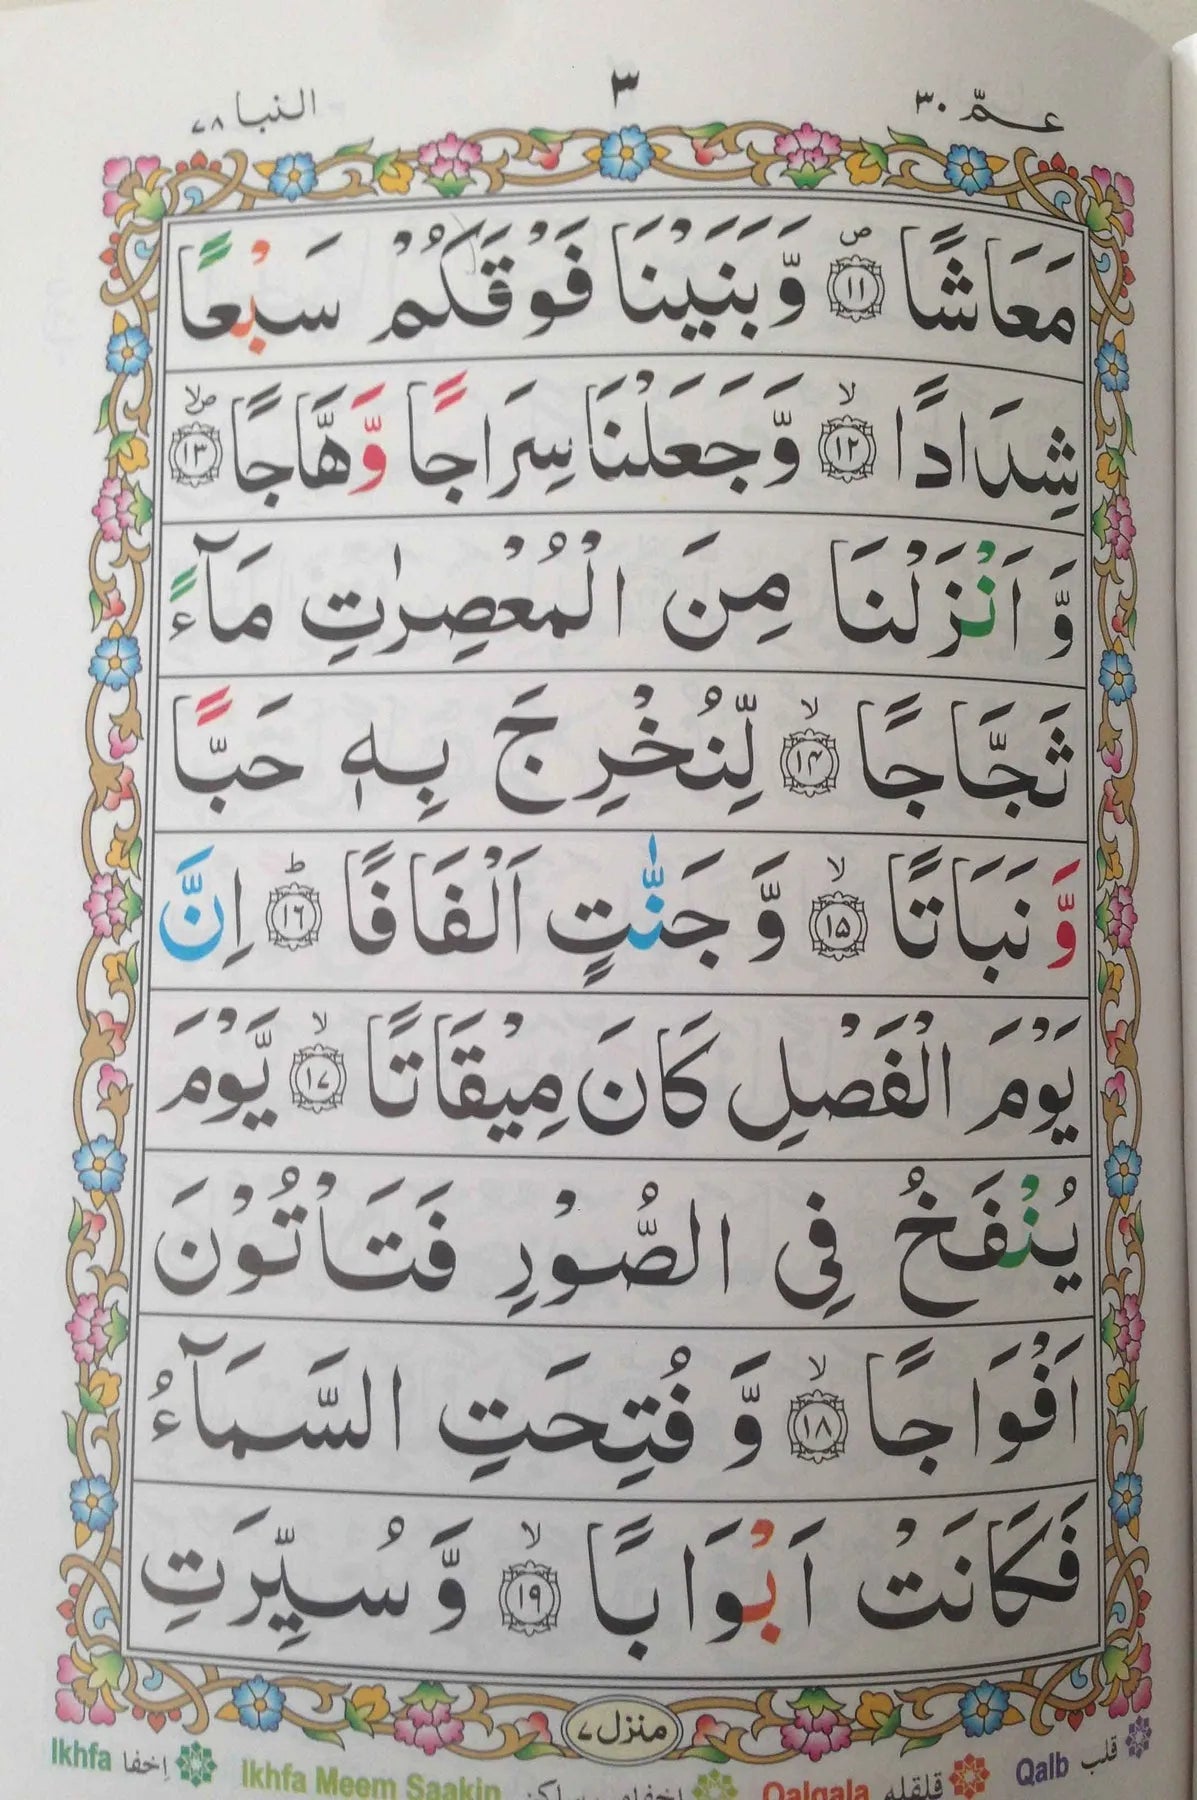 عمّ ٣٠
٣
النبا ٧٨
مَعَاشًا ۝١١ۙ وَّبَنَيْنَا فَوْقَكُمْ سَبْعًا
شِدَادًا ۝١٢ۙ وَّجَعَلْنَا سِرَاجًا وَّهَّاجًا ۝١٣
وَّ اَنْزَلْنَا مِنَ الْمُعْصِرٰتِ مَآءً
ثَجَّاجًا ۝١٤ۙ لِّنُخْرِجَ بِهٖ حَبًّا
وَّ نَبَاتًا ۝١٥ۙ وَّ جَنّٰتٍ اَلْفَافًا ۝١٦ؕ اِنَّ
يَوْمَ الْفَصْلِ كَانَ مِيْقَاتًا ۝١٧ۙ يَّوْمَ
يُنْفَخُ فِى الصُّوْرِ فَتَاْتُوْنَ
اَفْوَاجًا ۝١٨ۙ وَّ فُتِحَتِ السَّمَآءُ
فَكَانَتْ اَبْوَابًا ۝١٩ۙ وَّ سُيِّرَتِ
منزل ٧
قلب Qalb قلقله Qalqala Ikhfa Meem Saakin اِخفا Ikhfa